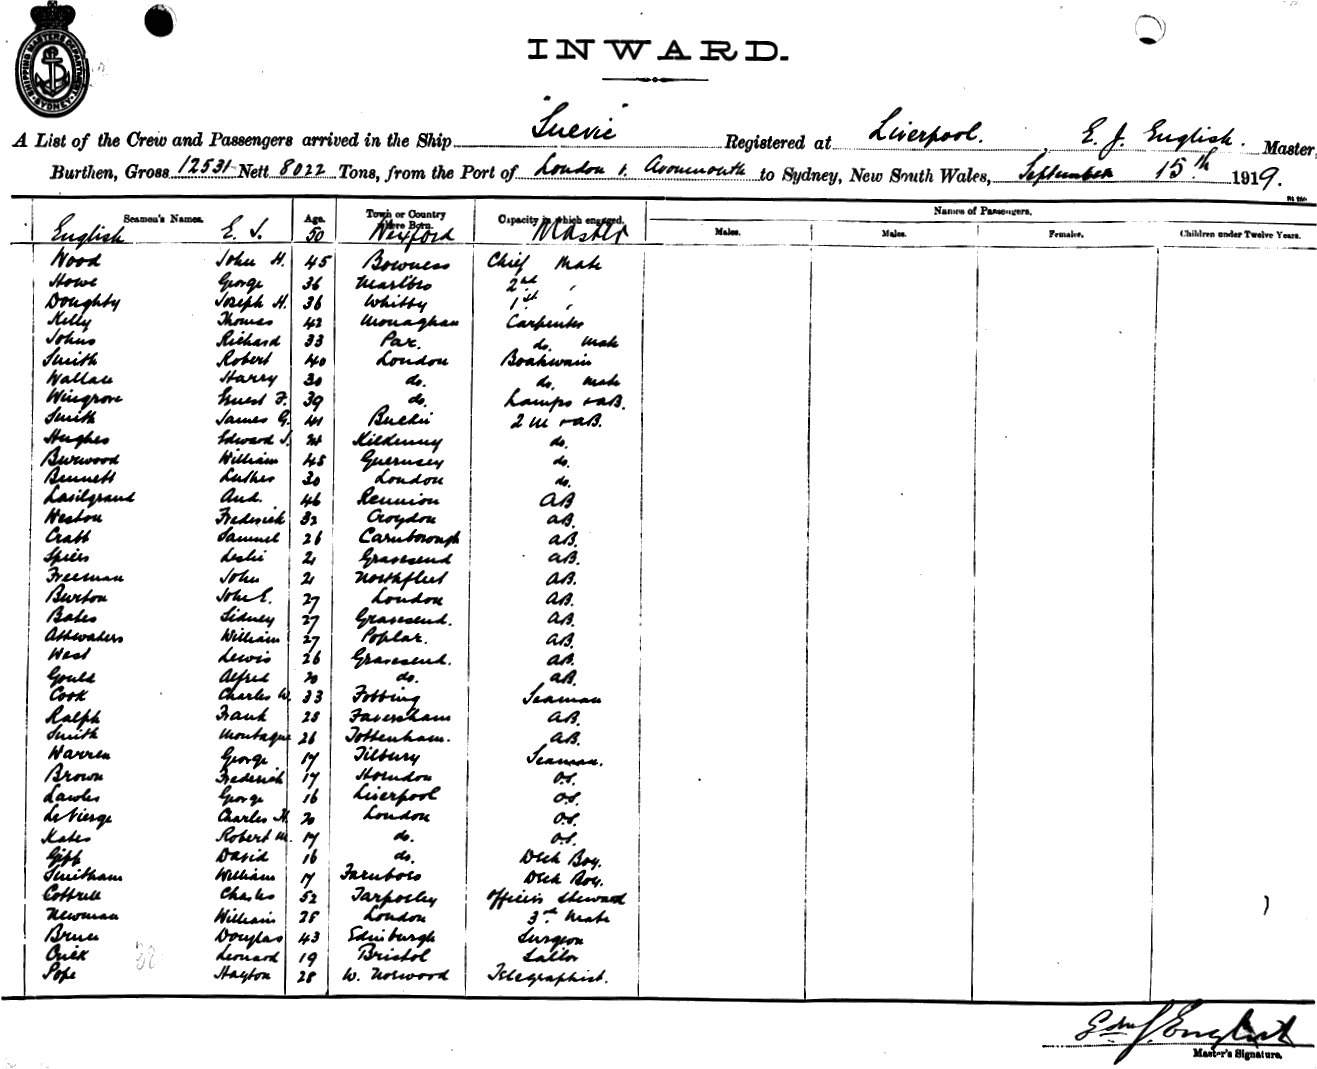 SHIPPING MASTERS DEPARTMENT SYDNEY
INWARD.
A List of the Crew and Passengers arrived in the Ship "Suevic" Registered at Liverpool. E. J. English. Master,
Burthen, Gross 12531 Nett 8022 Tons, from the Port of London & Avonmouth to Sydney, New South Wales, September 15th 1919.
Seamen's Names. Age. Town or Country where Born. Capacity in which engaged. Names of Passengers.
Males. Males. Females. Children under Twelve Years.
English E. J. 50 Wexford Master
Wood John H. 45 Bowness Chief Mate
Howe George 36 Marlbro 2nd "
Doughty Joseph H. 36 Whitby 1st "
Kelly Thomas 42 Monaghan Carpenter
Johns Richard 33 Par. do. Mate
Smith Robert 40 London Boatswain
Wallace Harry 30 do. do. Mate
Wingrove Ernest F. 39 do. Lamps & AB.
Smith James G. 41 2 M & AB.
Hughes Edward J. Kilkenny do.
Burwood William 45 Guernsey do.
Bennett Luther 30 London do.
And. 46 Reunion AB
Weston Frederick 32 Croydon AB.
Crabb Samuel 26 AB.
Spiers Leslie 21 Gravesend AB.
Freeman John 21 Northfleet AB.
Burton John E. 27 London AB.
Bates Sidney 27 Gravesend. AB.
Attwaters William 27 Poplar. AB.
West Lewis 26 Gravesend. AB.
Gould Alfred 20 do. AB.
Cook Charles W. 33 Fobbing Seaman
Ralph Frank 28 Faversham AB.
Smith Montague 26 Tottenham. AB.
Warren George 17 Tilbury Seaman.
Brown Frederick 17 Horndon O.S.
Lawler George 16 Liverpool O.S.
Le Vierge Charles H. 20 London O.S.
Kates Robert M. 17 do. O.S.
Gipp David 16 do. Deck Boy.
Smitham William 17 Farnboro Deck Boy.
Cottrell Charles 52 Tarporley Officers Steward
Newman William 25 London 3rd Mate
Bruce Douglas 43 Edinburgh Surgeon
Leonard 19 Bristol Sailor
Pope Hayton 28 W. Norwood Telegraphist.
38
Edw J. English
Master's Signature.